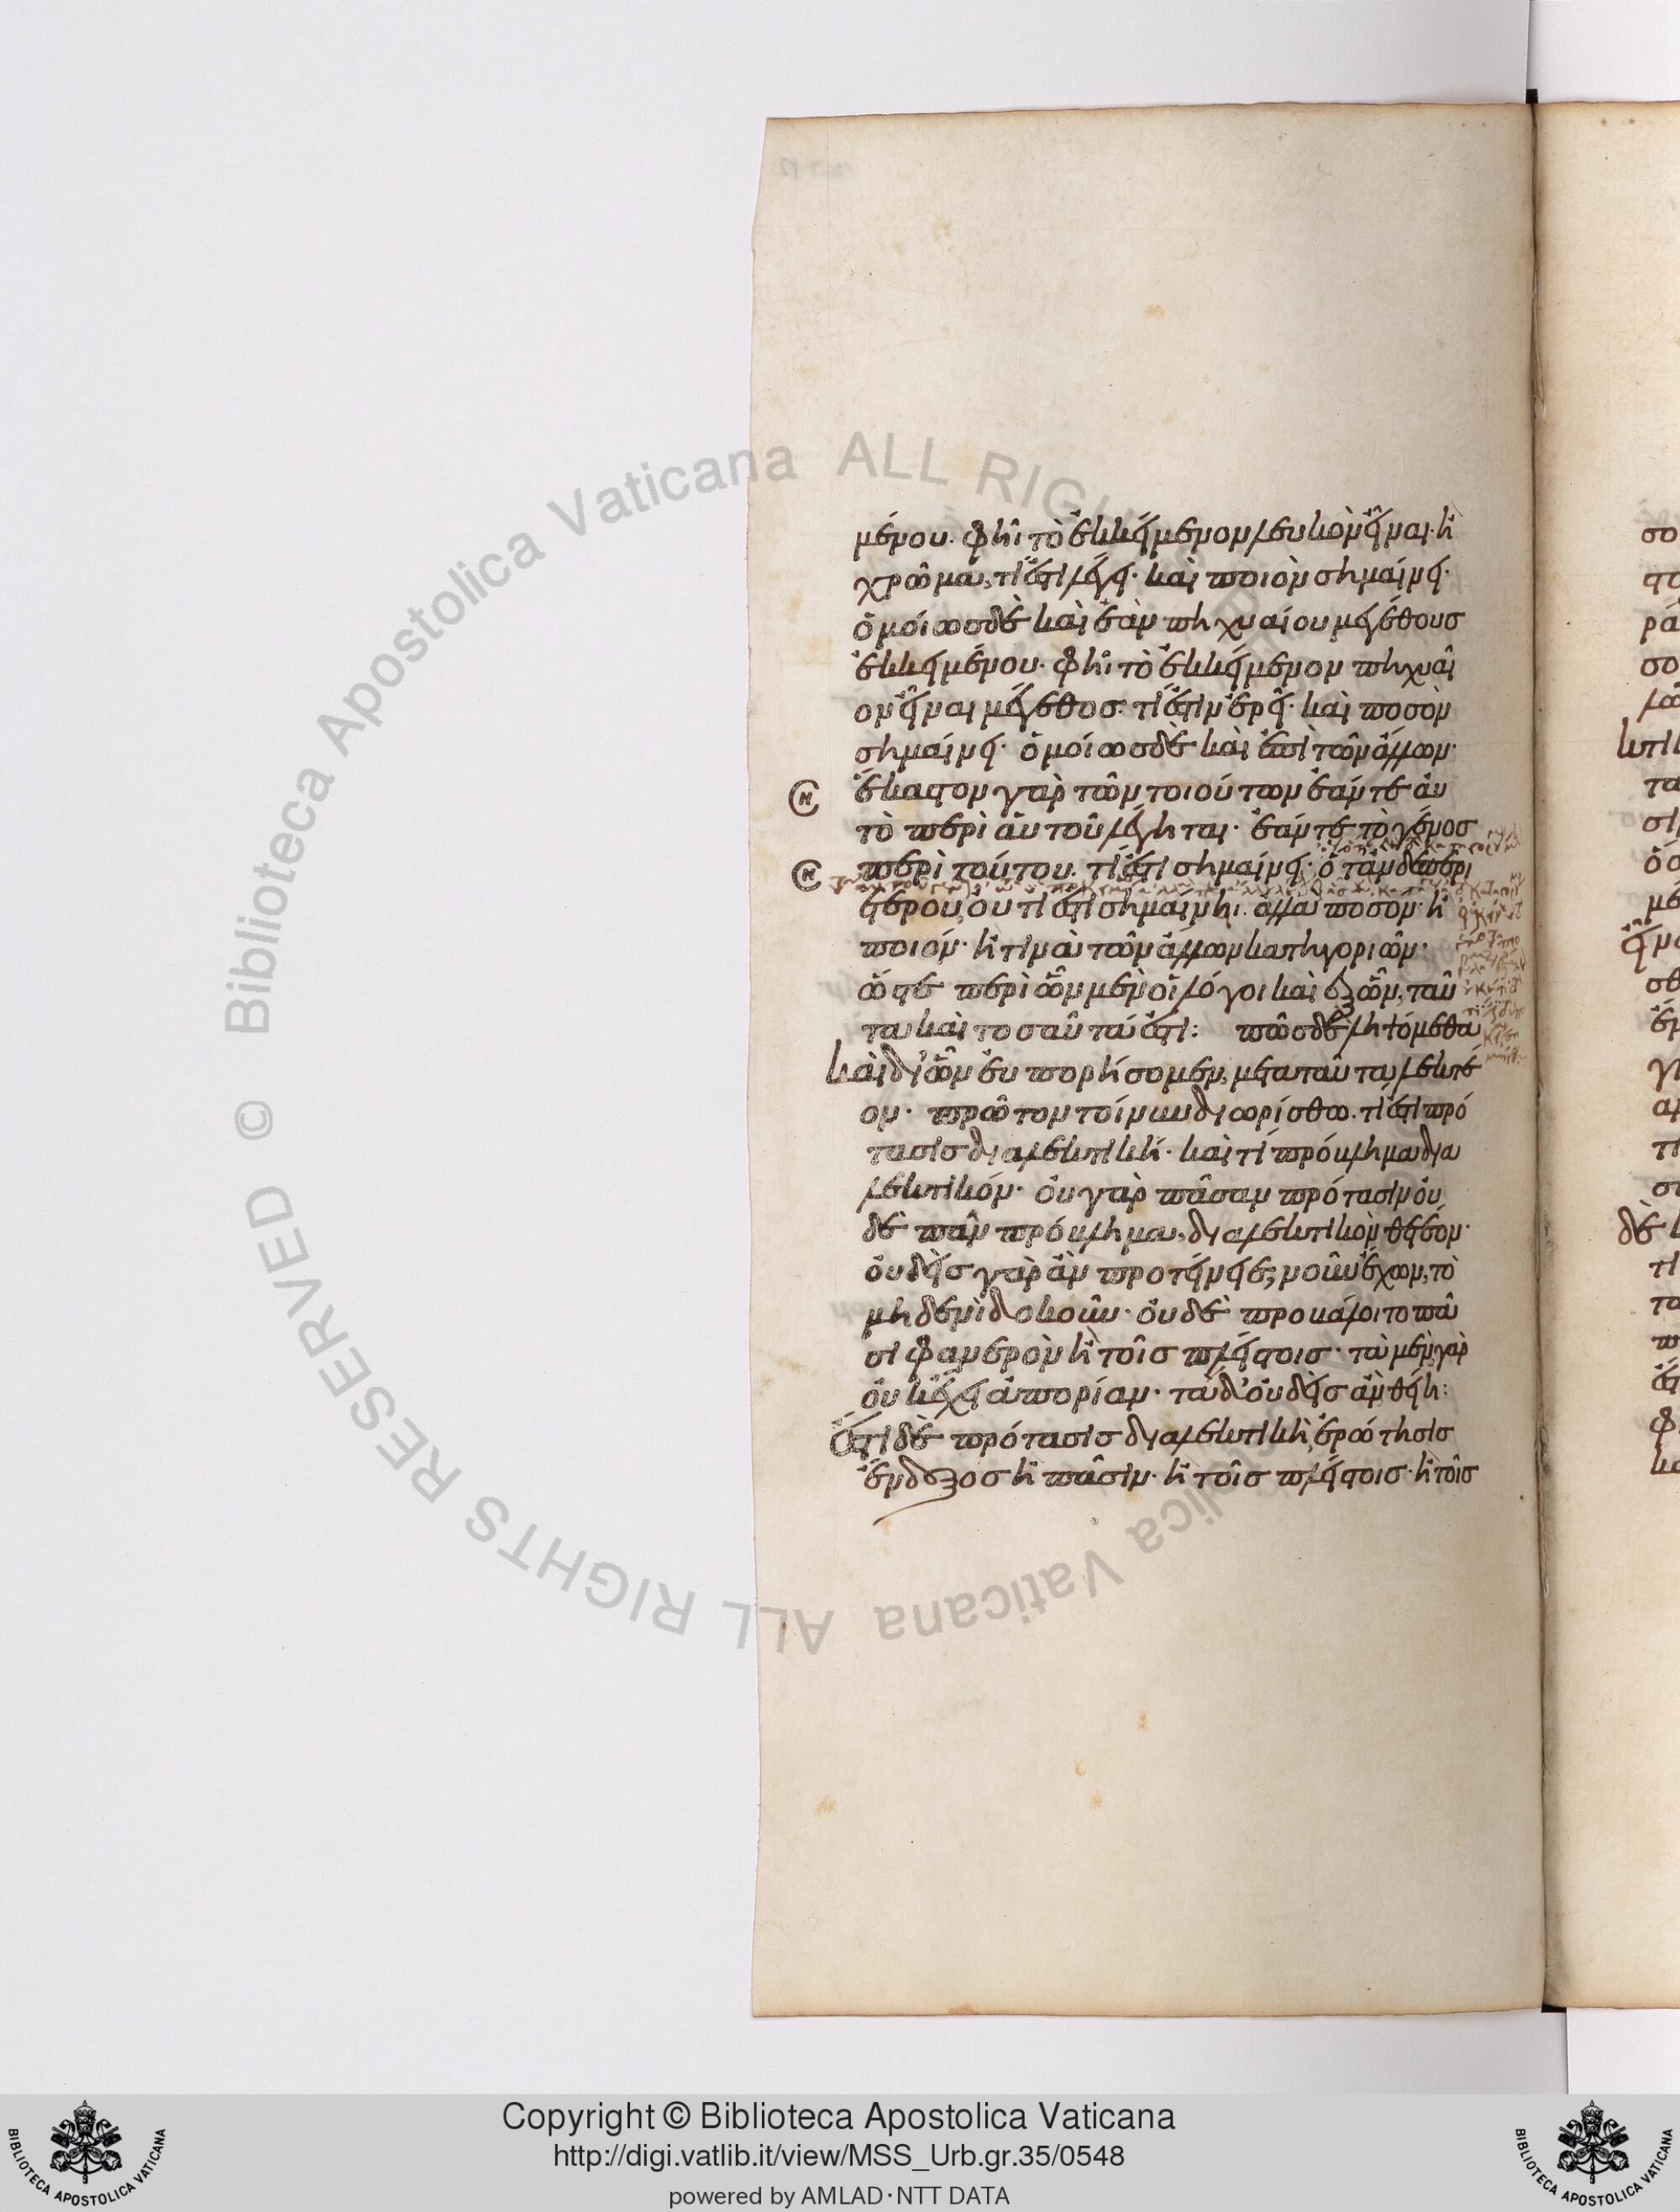 μένου· φῆι τὸ ἐκκείμενον λευκὸν εἶναι· ἢ
χρῶμα, τί ἐστι λέγει· καὶ ποιὸν σημαίνει·
ὁμοίως δὲ καὶ ἐὰν πηχυαίου μεγέθους
ἐκκειμένου· φῆι τὸ ἐκκείμενον πηχυαῖ
ον εἶναι μέγεθος· τί ἐστιν ἐρεῖ· καὶ ποσὸν
σημαίνει· ὁμοίως δὲ καὶ ἐπὶ τῶν ἄλλων·
ἕκαστον γὰρ τῶν τοιούτων ἐάν τε αὐ
τὸ περὶ αὑτοῦ λέγηται· ἐάν τε τὸ γένος
περὶ τούτου· τί ἐστι σημαίνει· ὅταν δὲ περὶ
ἑτέρου, οὐ τί ἐστι σημαίνηι· ἀλλὰ ποσὸν· ἢ
ποιόν· ἤ τινα τῶν ἄλλων κατηγοριῶν·
ὥστε περὶ ὧν μὲν οἱ λόγοι καὶ ἐξ ὧν, ταῦ
τα καὶ τοσαῦτά ἐστι: πῶς δὲ ληψόμεθα
καὶ δι' ὧν εὐπορήσομεν, μετὰ ταῦτα λεκτέ
ον· πρῶτον τοίνυν διωρίσθω· τί ἐστι πρό
τασις διαλεκτική· καὶ τί πρόβλημα δια
λεκτικόν· οὐ γὰρ πᾶσαν πρότασιν οὐ
δὲ πᾶν πρόβλημα, διαλεκτικὸν θετέον·
οὐδεὶς γὰρ ἂν προτείνειε, νοῦν ἔχων, τὸ
μηδενὶ δοκοῦν· οὐδὲ προβάλοιτο τὸ πᾶ
σι φανερὸν ἢ τοῖς πλείστοις· τὰ μὲν γὰρ
οὐκ ἔχει ἀπορίαν· τὰ δ' οὐδεὶς ἂν θείη:
Ἔστι δὲ πρότασις διαλεκτικὴ, ἐρώτησις
ἔνδοξος ἢ πᾶσιν· ἢ τοῖς πλείστοις· ἢ τοῖς
Copyright © Biblioteca Apostolica Vaticana
http://digi.vatlib.it/view/MSS_Urb.gr.35/0548
powered by AMLAD·NTT DATA